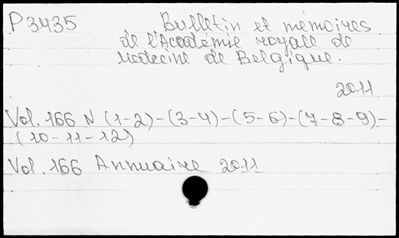 P 3435 Bulletin et mémoires
de l'Académie royale de
Medecine de Belgique.
2011
Vol. 166 N (1-2)-(3-4)-(5-6)-(7-8-9)-
(10-11-12)
Vol. 166 Annuaire 2011